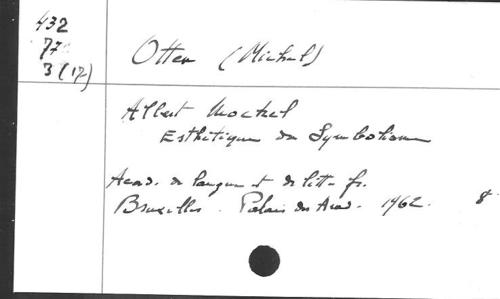 432
77
3 (17)
Otten (Michel)
Albert Mockel
Esthétique du Symbolisme
Acad. de langue et de litt. fr.
Bruxelles. Palais des Acad. 1962. 8°